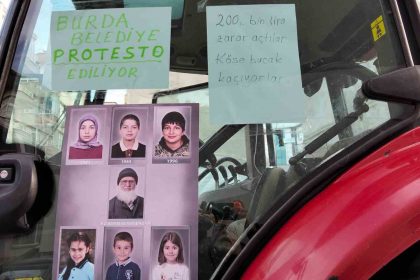 BURDA
BELEDİYE
PROTESTO
EDİLİYOR
200. bin lira
zarar açtılar
Köşe bucak
kaçıyorlar
1996